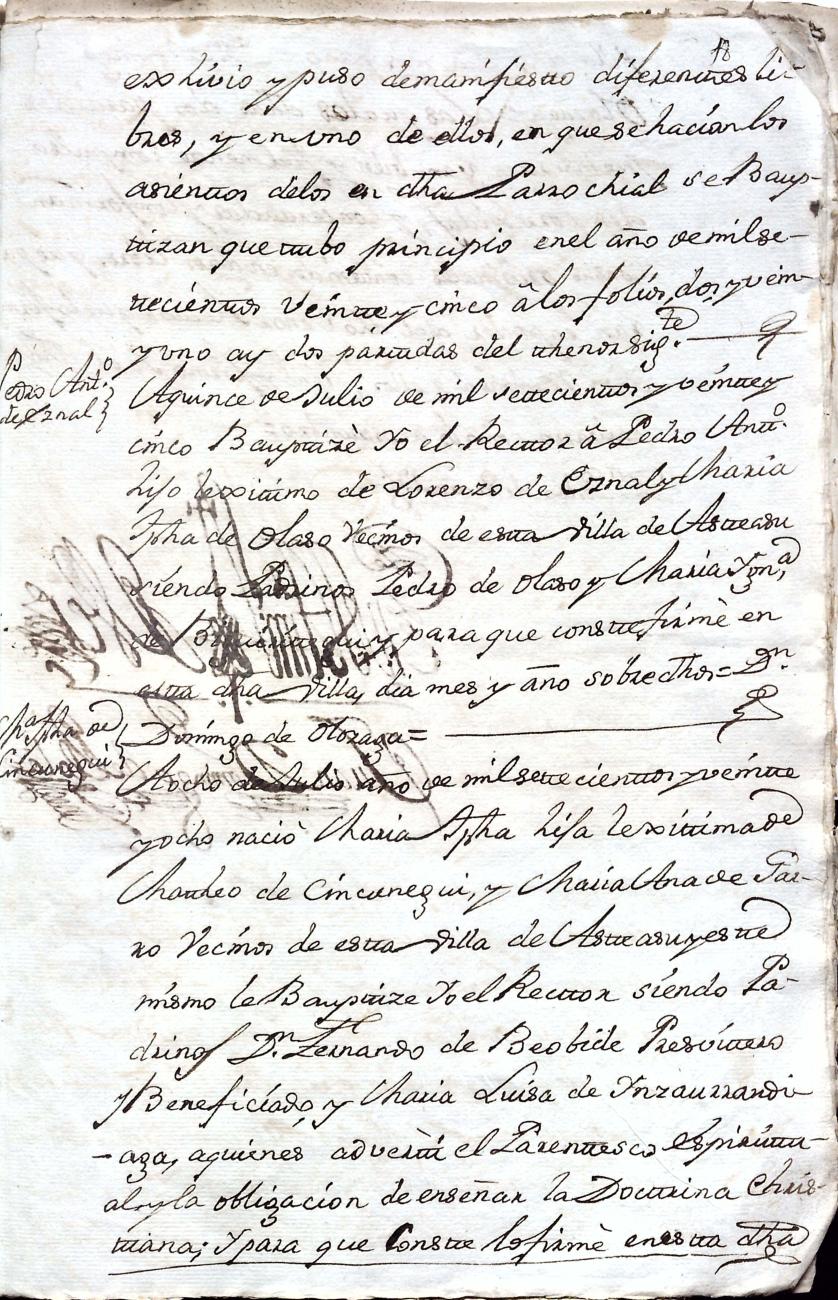 18
exhivio y puso demanifiestto diferenttes li-
bros, y en vno de ellos, en que se hacian los
asienttos delos en dha Parrochial se Baup-
ttizan que ttubo principio en el año de mil se-
ttecienttos veintte y cinco â los folios, dos, y vein-
y vno ay dos parttidas del tthenor sigte.
Pedro Anto.
de Eznal
A quince de Julio de mil settecienttos y veintte y
cinco Bauptizè Yo el Recttor â Pedro Antto.
hijo lexitimo de Lorenzo de Eznal y Maria
Jpha de Olaso Vecinos de estta Villa de Astteasu
siendo Padrinos Pedro de Olaso y Maria Ygna
de y para que constte, firmè en
estta dha Villa, dia mes y año sobre dhos= Dn.
Ma Jpha de
Cincunegui
Domingo de Olozaga=
A ocho de Julio año de mil settecienttos y veintte
y ocho naciò Maria Jpha hija lexittima de
Matheo de Cincunegui, y Maria Ana de Gar-
ro Vecinos de estta Villa de Astteasu y estte
mismo le Bauptize Yo el Recttor siendo Pa-
drinos Dn. Fernando de Beobide Presvittero
y Beneficiado, y Maria Luisa de Ynzaurrandi-
-aga, a quienes adverttì el Parenttesco espirittu-
al y la obligacion de enseñar la Docttrina Chris-
ttiana; Y para que Constte lo firmè en estta dha